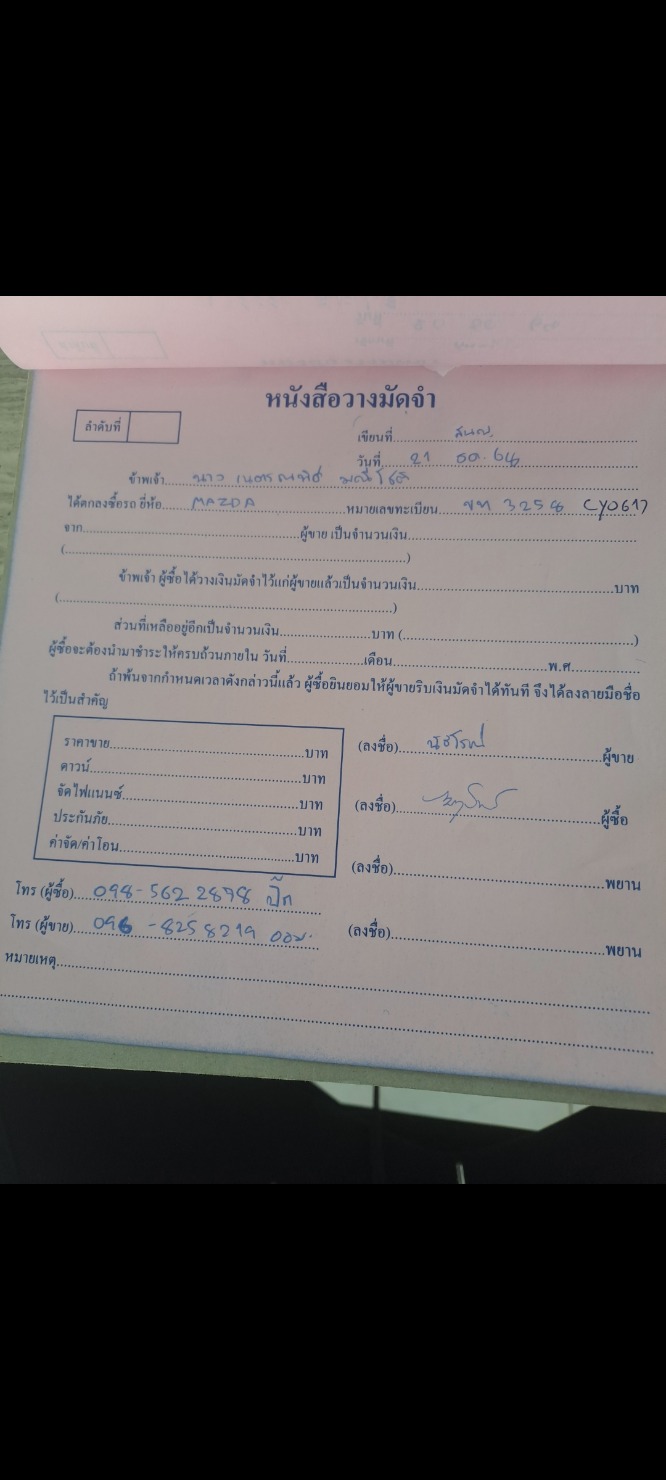 หนังสือวางมัดจำ
ลำดับที่
เขียนที่.......... สนญ.
วันที่.... 21 ตค. 64
ข้าพเจ้า....
ได้ตกลงซื้อรถ ยี่ห้อ...... MAZDA ......หมายเลขทะเบียน.... 3258 CY0617
จาก..........ผู้ขาย เป็นจำนวนเงิน..........
(..........)
ข้าพเจ้า ผู้ซื้อได้วางเงินมัดจำไว้แก่ผู้ขายแล้วเป็นจำนวนเงิน..........บาท
(..........)
ส่วนที่เหลืออยู่อีกเป็นจำนวนเงิน..........บาท (..........)
ผู้ซื้อจะต้องนำมาชำระให้ครบถ้วนภายใน วันที่..........เดือน..........พ.ศ..........
ถ้าพ้นจากกำหนดเวลาดังกล่าวนี้แล้ว ผู้ซื้อยินยอมให้ผู้ขายริบเงินมัดจำได้ทันที จึงได้ลงลายมือชื่อ
ไว้เป็นสำคัญ
ราคาขาย..........บาท
ดาวน์..........บาท
จัดไฟแนนซ์..........บาท
ประกันภัย..........บาท
ค่าจัด/ค่าโอน..........บาท
(ลงชื่อ)..........ผู้ขาย
(ลงชื่อ)..........ผู้ซื้อ
(ลงชื่อ)..........พยาน
(ลงชื่อ)..........พยาน
โทร (ผู้ซื้อ).... 098-562 2898 ปิ๊ก
โทร (ผู้ขาย).... 096-825 8219 ออม
หมายเหตุ..........